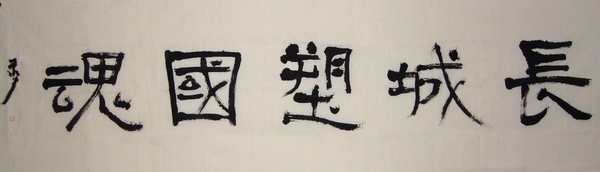 長城塑國魂